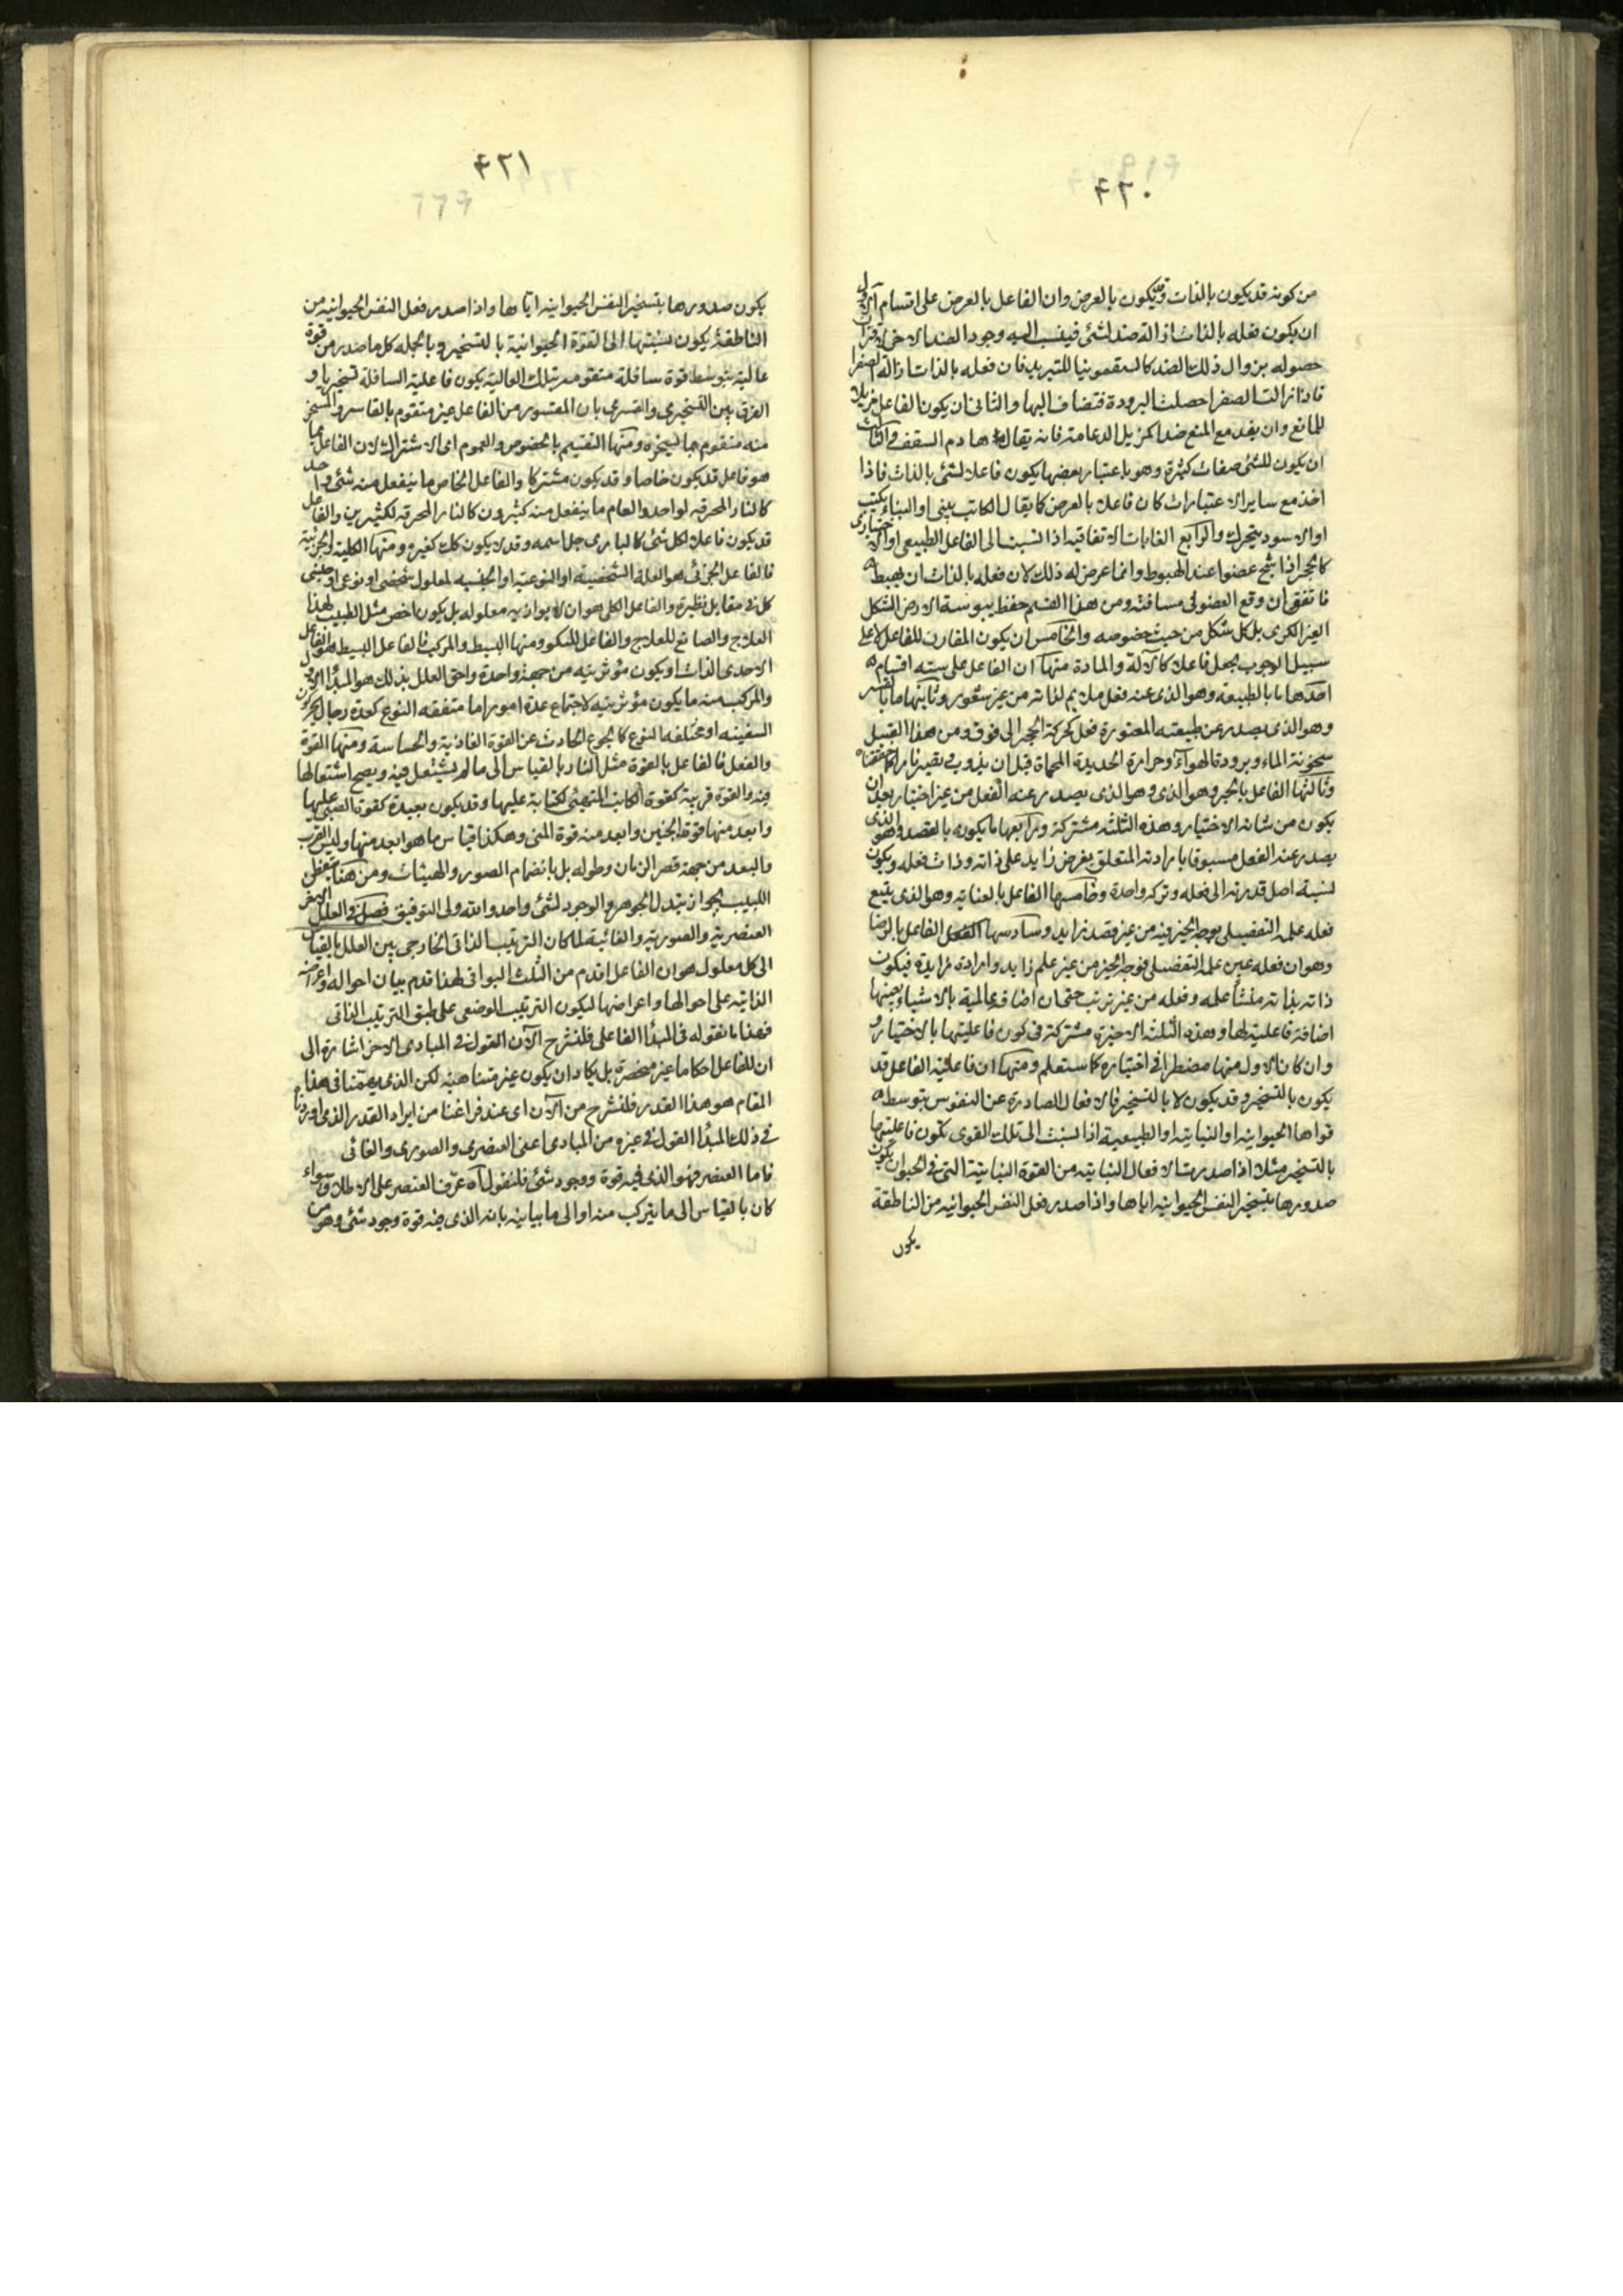 ٤٢٠
من كونه قد يكون بالذات وقد يكون بالعرض وان الفاعل بالعرض على اقسام الاول
ان يكون فعله بالذات ازالة ضد لشئ فينسب اليه وجود الضد الاخر لاقتران
حصوله بزوال ذلك الضد كالسقمونيا للتبريد فان فعله بالذات ازالة الصفرا
فاذا زالت الصفرا حصلت البرودة فتضاف اليها والثانى ان يكون الفاعل مزيلا
للمانع وان يفد مع المنع ضدا كمزيل الدعامة فانه يقال هادم السقف والثالث
ان يكون للشئ صفات كثيرة وهو باعتبار بعضها يكون فاعلا لشئ بالذات فاذا
اخذ مع ساير الاعتبارات كان فاعلا بالعرض كما يقال الكاتب يبنى او البناء يكتب
او الاسود يتحرك والرابع الغايات الاتفاقية اذا نسبت الى الفاعل الطبيعى او الاختيارى
كالحجر اذا شج عضوا عند الهبوط وانما عرض له ذلك لان فعله بالذات ان يهبط
فاتفق ان وقع العضو فى مسافته ومن هذا القسم حفظ يبوسة الارض الشكل
الغير الكرى بل كل شكل من حيث خصوصه والخامس ان يكون المقارن للفاعل لا على
سبيل الوجوب يجعل فاعلا كالآلة والمادة منها ان الفاعل على سته اقسام
احدها ما بالطبيعه وهو الذى عنه فعل ملايم لذاته من غير شعور وثانيها ما بالقسر
وهو الذى يصدر عن طبيعته المقسورة فعل كحركة الحجر الى فوق ومن هذا القبيل
سخونة الماء وبرودة الهواء وحرارة الحديدة المحماة قبل ان يذوب فيصير نارا كما حققناه
وثالثها الفاعل بالجبر وهو الذى وهو الذى يصدر عنه الفعل من غير اختيار بعد ان
يكون من شانه الاختيار وهذه الثلثه مشتركة ورابعها ما يكون بالقصد وهو الذى
يصدر عنه الفعل مسبوقا بارادته المتعلق بغرض زايد على ذاته وذات فعله ويكون
نسبة اصل قدرته الى فعله وتركه واحدة وخامسها الفاعل بالعناية وهو الذى يتبع
فعله علمه التفصيلى بوجه الخير فيه من غير قصد زايد وسادسها الفاعل بالرضا
وهو ان فعله عين علمه التفصيلى فوجه الخير من غير علم زايد وارادة زايدة فيكون
ذاته بذاته منشأ علمه وفعله من غير ترتب حتى ان اضافة عالمية بالاشياء بعينها
اضافة فاعلية لها وهذه الثلثه الاخيرة مشتركة فى كون فاعليتها بالاختيار و
ان كان الاول منها مضطرا فى اختياره كما ستعلم ومنها ان فاعلية الفاعل قد
يكون بالتسخير وقد يكون لا بالتسخير فالافعال الصادرة عن النفوس بتوسط
قواها الحيوانيه او النباتيه او الطبيعية اذا نسبت الى تلك القوى تكون فاعليتها
بالتسخير مثلا اذا صدرت الافعال النباتيه من القوة النباتية التى فى الحيوان يكون
صدورها بتسخير النفس الحيوانيه اياها واذا صدر فعل النفس الحيوانيه من الناطقة
يكون
٤٢١
يكون صدورها بتسخير النفس الحيوانيه اياها واذا صدر فعل النفس الحيوانيه من
الناطقة يكون نسبتها الى القوة الحيوانية بالتسخير وبالجمله كل ما صدر من قوة
عالية بتوسط قوة سافلة متقومه بتلك العالية يكون فاعلية السافلة تسخيريا و
الفرق بين التسخيرى والقسرى بان المقسور من الفاعل غير متقوم بالقاسر والمسخر
منه متقوم بما يسخره ومنها التقسيم بالخصوص والعموم اى الاشتراك لان الفاعل بما
هو فاعل قد يكون خاصا وقد يكون مشتركا والفاعل الخاص ما ينفعل منه شئ واحد
كالنار المحرقه لواحد والعام ما ينفعل منه كثيرون كالنار المحرقة لكثيرين والفاعل
قد يكون فاعلا لكل شئ كالبارى جل اسمه وقد لا يكون كك كغيره ومنها الكلية والجزئية
فالفاعل الجزئى هو العلة الشخصية او النوعية او الجنسيه لمعلول شخصى او نوعى او جنسى
كل فى مقابل نظيره والفاعل الكلى هو ان لا يوازيه معلوله بل يكون اخص مثل الطبيب لهذا
العلاج والصانع للعلاج والفاعل للسكر ومنها البسيط والمركب فالفاعل البسيط هو الفاعل
الاحدى الذات او يكون مؤثريته من جهة واحدة واحق العلل بذلك هو المبدأ الاول
والمركب منه ما يكون مؤثريته لاجتماع عدة امور اما متفقه النوع كعدة رجال يحركون
السفينه او مختلفه النوع كالجوع الحادث عن القوة الغاذية والحساسة ومنها القوة
والفعل فالفاعل بالقوة مثل النار بالقياس الى ما لم يشتعل فيه ويصح اشتعالها
فيه والقوة قريبة كقوة الكاتب المتهيئ لكتابة عليها وقد يكون بعيدة كقوة الصبى عليها
وابعد منها قوة الجنين وابعد منه قوة المنى وهكذا قياس ما هو ابعد منها وليس القرب
والبعد من جهة قصر الزمان وطوله بل بانضمام الصور والهيئات ومن هنا يتفطن
اللبيب بجواز تبدل الجوهر والوجود لشئ واحد والله ولى التوفيق فصل والعلل
العنصرية والصورية والغائية لما كان الترتيب الذاتى الخارجى بين العلل بالقياس
الى كل معلول هو ان الفاعل اقدم من الثلث البواقى لهذا قدم بيان احواله واعراضه
الذاتيه على احوالها واعراضها ليكون الترتيب الوضعى على طبق الترتيب الذاتى
فهذا ما نقوله فى المبدأ الفاعلى فلنشرح الآن القول فى المبادى الاخر اشارة الى
ان للفاعل احكاما غير منحصرة بل يكاد ان يكون غير متناهيه لكن الذى يهمنا فى هذا
المقام هو هذا القدر فلنشرح من الآن اى عند فراغنا من ايراد القدر الذى اوردناه
فى ذلك المبدأ القول فى غيره من المبادى اعنى العنصرى والصورى والغائى
فاما العنصر فهو الذى فيه قوة وجود شئ فلنقول آه عرّف العنصر على الاطلاق سواء
كان بالقياس الى ما يتركب منه او الى ما يباينه بانه الذى فيه قوة وجود شئ وهو من